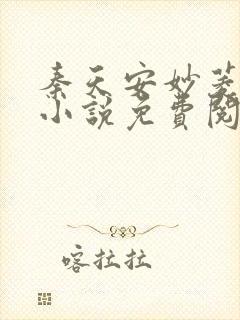 秦天安妙菱
小說免費閱
喀拉拉